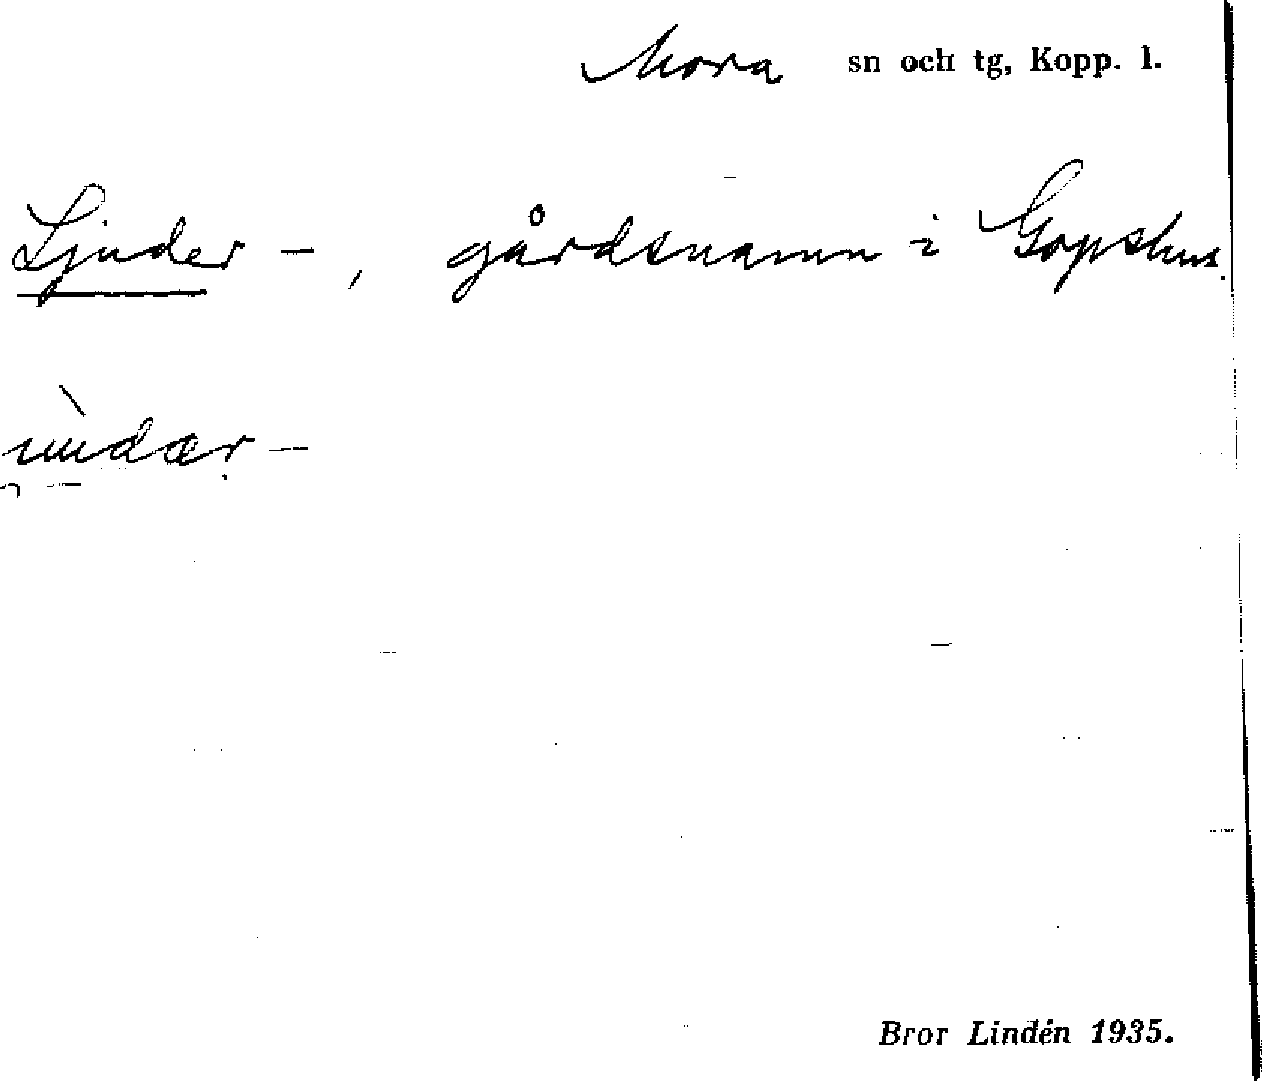 Mora sn och tg, Kopp. l.
Ljuder – , gårdsnamn i Gopshus.
Bror Lindén 1935.